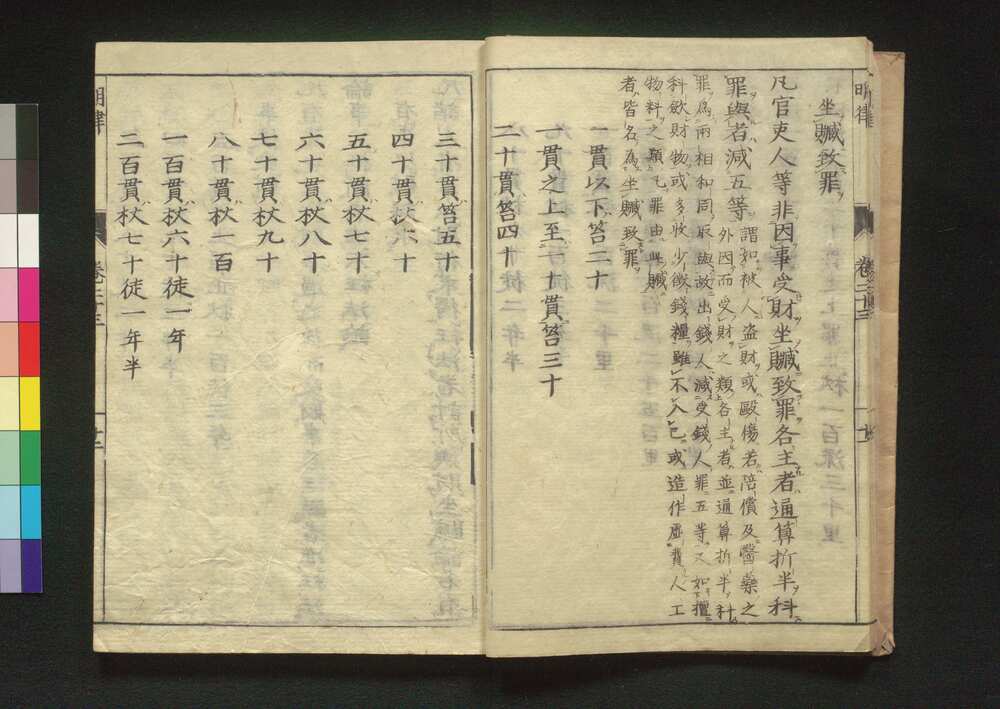 明律
卷二十三
坐贓致罪
凡官吏人等非因事受財坐贓致罪各主者通算折半科
罪與者減五等
謂如被人盜財或毆傷若陪償及醫藥之
外因而受財之類各主者並通算折半科
罪為兩相和同取與故出錢人減受錢人罪五等又如擅
科歛財物或多收少徵錢糧雖不入己或造作虛費人工
物料之類凡罪由此贓
者皆名為坐贓致罪
一貫以下笞二十
一貫之上至一十貫笞三十
二十貫笞四十
三十貫笞五十
四十貫杖六十
五十貫杖七十
六十貫杖八十
七十貫杖九十
八十貫杖一百
一百貫杖六十徒一年
二百貫杖七十徒一年半
明律
卷二十三